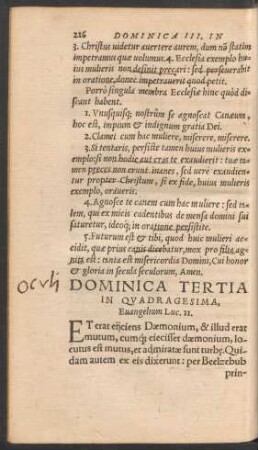 226 DOMINICA III. IN
3. Christus uidetur auertere aurem, dum nō statim
impetramus quæ volumus. 4. Ecclesia exemplo hu-
ius mulieris non desinit precari: sed perseuerabit
in oratione, donec impetrauerit quod petit.
Porrò singula membra Ecclesiæ hinc quòd di-
scant habent.
1. Vnusquisq; nostrûm se agnoscat Canæum,
hoc est, impium & indignum gratia Dei.
2. Clamet cum hac muliere, miserere, miserere.
3. Si tentaris, persiste tamen huius mulieris ex-
emplo: si non hodie aut cras te exaudierit: tuæ ta-
men preces non erunt inanes, sed uere exaudien-
tur propter Christum, si ex fide, huius mulieris
exemplo, oraueris.
4. Agnosce te canem cum hac muliere: sed ta-
lem, qui ex micis cadentibus de mensa domini sui
saturetur, ideoq; in oratione persistite.
5. Futurum est & tibi, quod huic mulieri ac-
cidit, quæ prius canis dicebatur, mox pro filia agni-
ta est: tanta est misericordia Domini, Cui honor
& gloria in secula seculorum, Amen.
Oculi
DOMINICA TERTIA
IN QVADRAGESIMA,
Euangelium Luc. 11.
ET erat eijciens Dæmonium, & illud erat
mutum, cumq́; eiecisset dæmonium, lo-
cutus est mutus, et admiratæ sunt turbę. Qui-
dam autem ex eis dixerunt: per Beelzebub
prin-